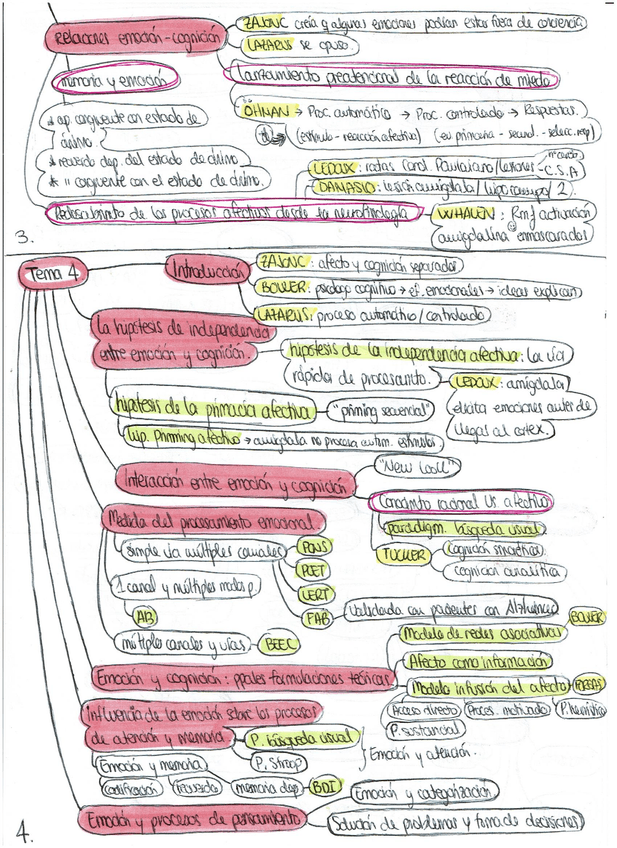 Relaciones emoción-cognición
ZAJONC creía q algunas emociones podían estar fuera de conciencia
LAZARUS se opuso.
memoria y emoción
Lanzamiento preatencional de la reacción de miedo
* ap. congruente con estado de
ánimo.
* recuerdo dep. del estado de ánimo
* " congruente con el estado de ánimo.
ÖHMAN → Proc. automático → Proc. controlado → Respuestas.
(estímulo - reacción afectiva) (ev primaria - secund. - selecc. resp)
LEDOUX: ratas Cond. Pavloviano/lesiones - C.S.A
DAMASIO: lesión amígdala/hipocampo/2.
Redescubrimto de los procesos afectivos desde la neurofisiología
WHALEN: Rmf activación
amigdalina enmascarados
3.
Tema 4
Introducción
ZAJONC: afecto y cognición separados
BOWER: psicólogo cognitivo → ef. emocionales → ideas explican
LAZARUS: proceso automático/controlado
La hipótesis de independencia
entre emoción y cognición.
hipótesis de la independencia afectiva: la vía
rápida de procesamto.
LEDOUX: amígdala
elicita emociones antes de
llegar al cortex.
hipótesis de la primacía afectiva
"priming secuencial"
hip. Priming afectivo → amígdala no procesa autom. estímulos
Interacción entre emoción y cognición
"New Look"
Conocimto racional Vs afectivo
paradigm. búsqueda visual
TUCKER
cognición sincrética
cognición analítica
Medida del procesamiento emocional
simple vía múltiples canales
PONS
PIET
LERT
FAB
Validada con pacientes con Alzheimer
1 canal y múltiples modos p.
AB
múltiples canales y vías
BEEC
Emoción y cognición: ppales formulaciones teóricas
Modelo de redes asociativas
BOWER
Afecto como información
Modelo infusión del afecto
FORGAS
Acceso directo
Proces. motivado
P. heurístico
P. sustancial
Influencia de la emoción sobre los procesos
de atención y memoria
P. búsqueda visual
P. Stroop
Emoción y atención.
Emoción y memoria
codificación
recuerdo
memoria dep
BDI
Emoción y procesos de pensamiento
Emoción y categorización
Solución de problemas y toma de decisiones
4.